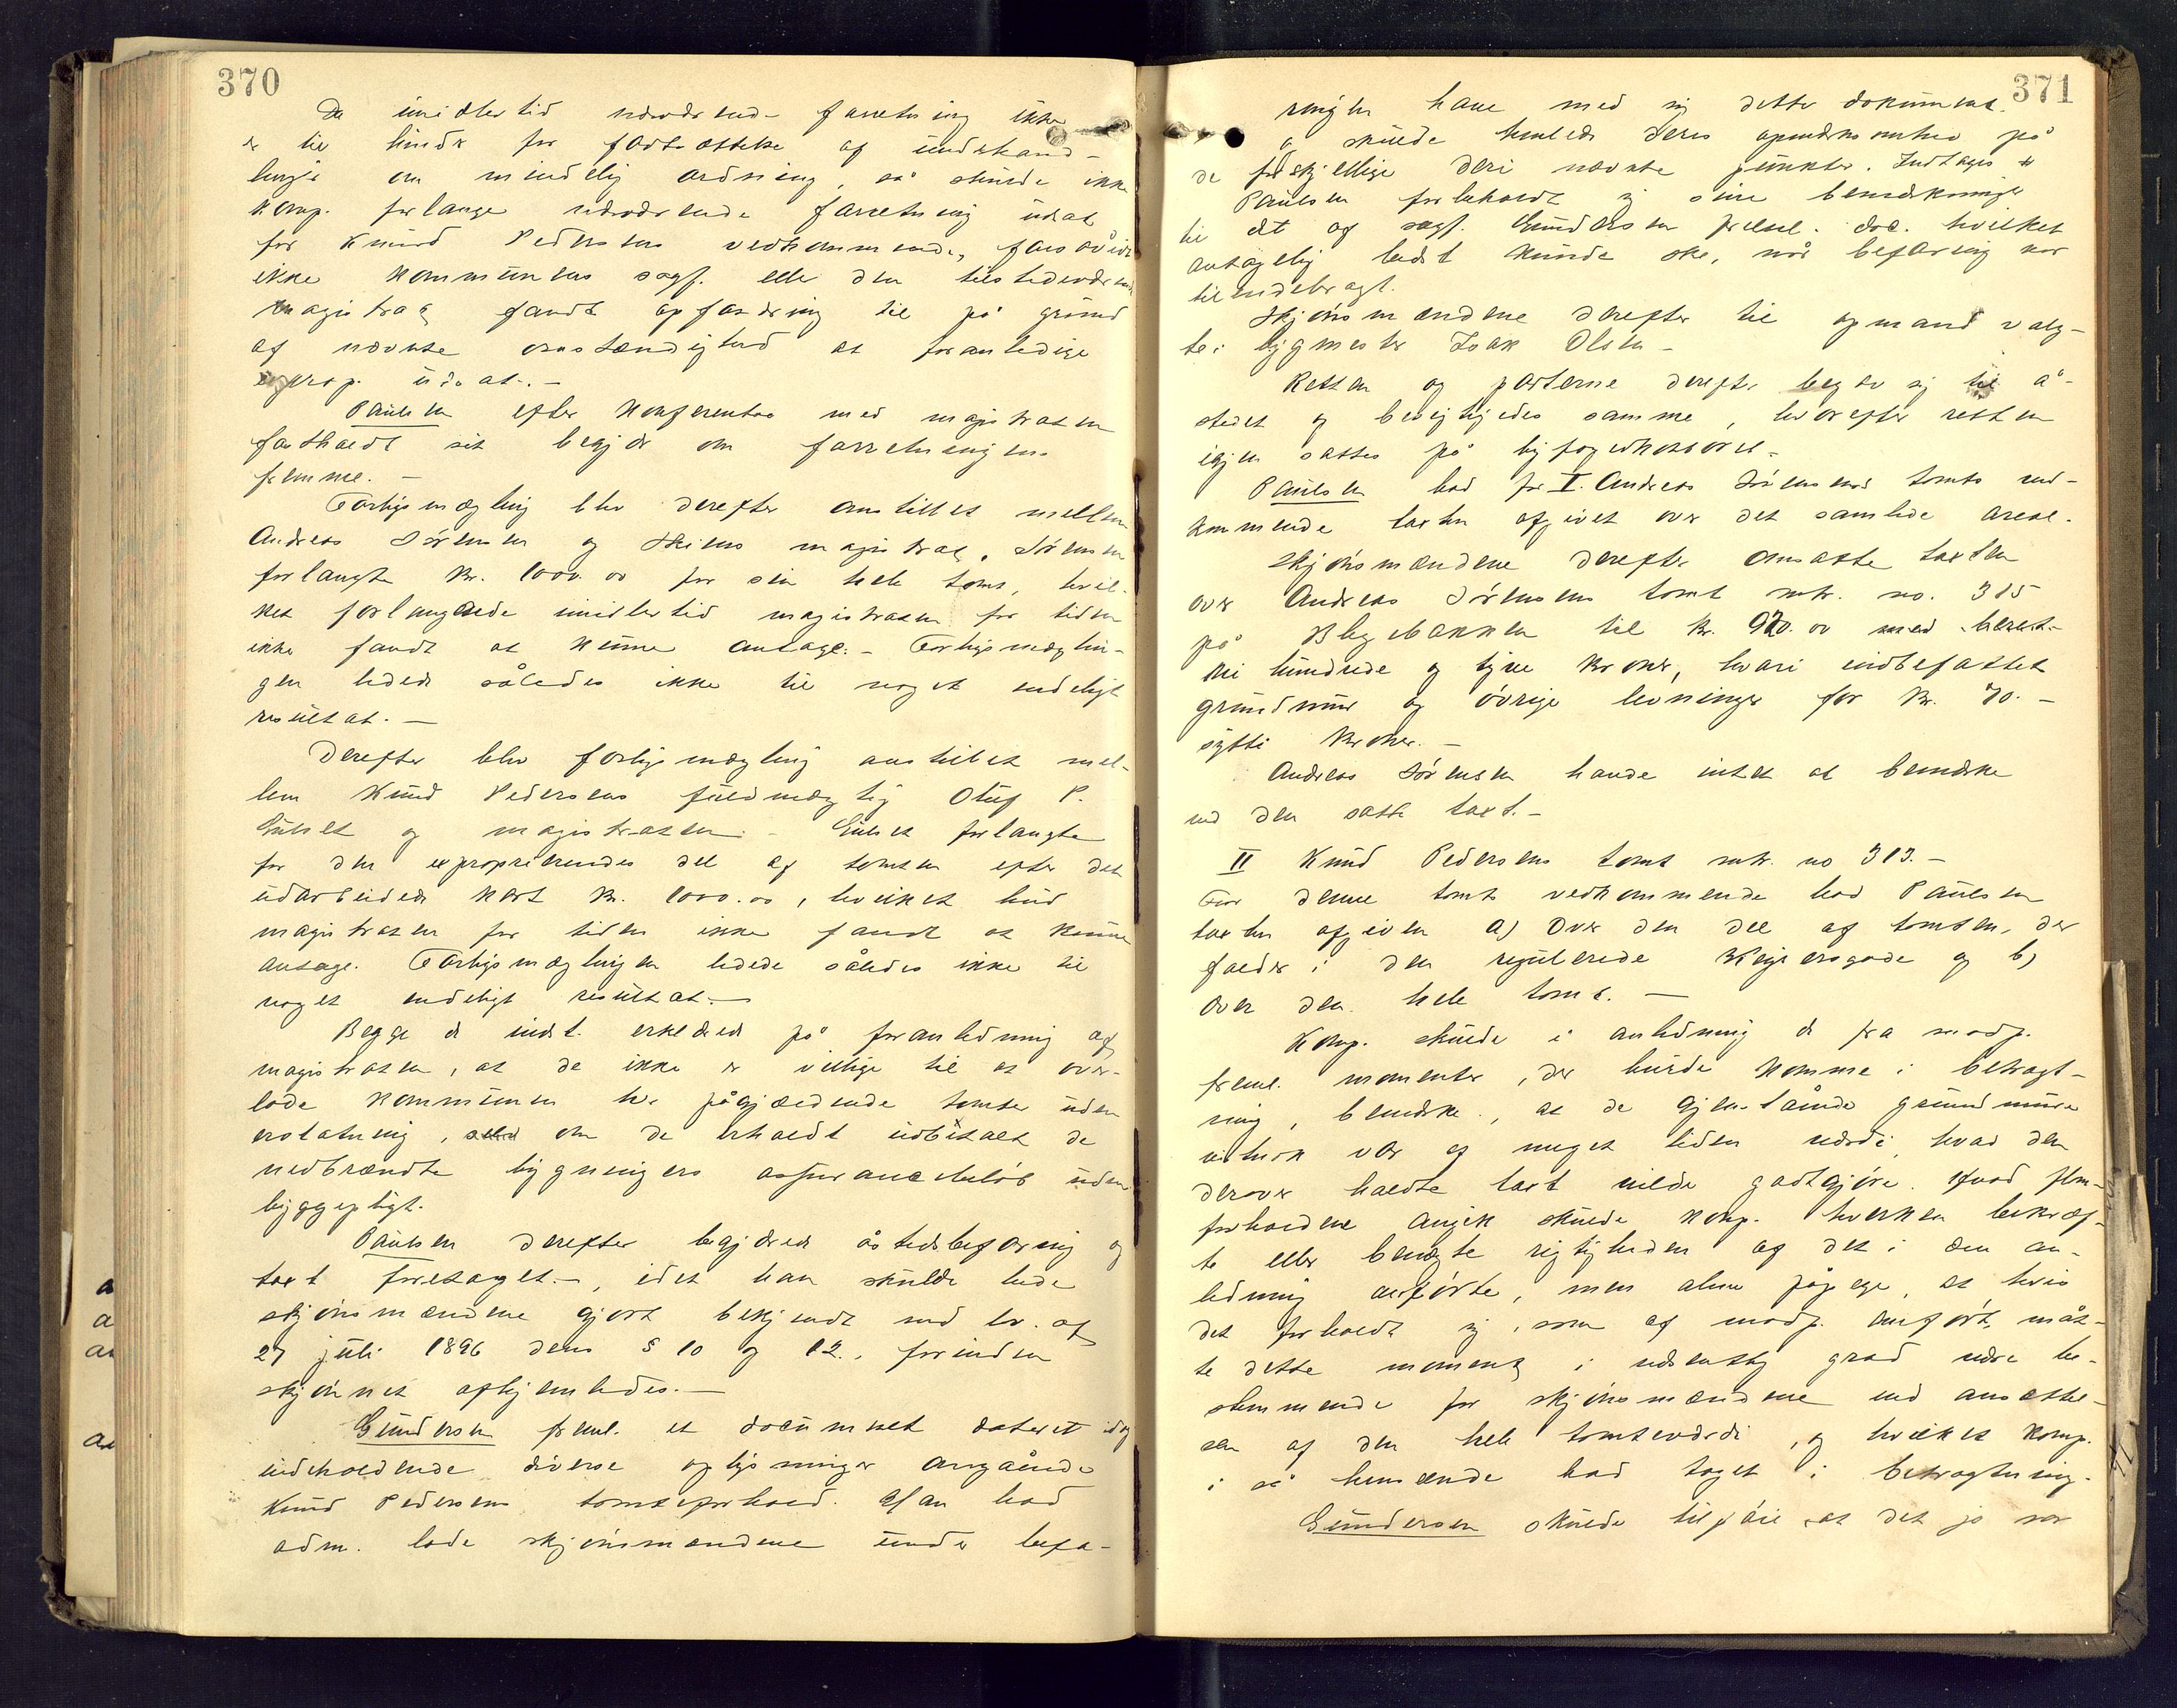 370
Da imidlertid nærværende forretning ikke
er til hinder for fortsættelse af underhand-
linger om mindelig ordning, så skulde ikke
komp. forlange nærværende forretning udsat
for Knud Pedersens vedkommende, forsåvidt
ikke kommunens sagf. eller den tilstedeværende
magistrat fandt opfordring til på grund
af nævnte omstændighed at foranledige
exprop. udsat. -
Paulsen efter konferentse med magistraten
fastholdt sit begjær om forretningens
fremme. -
Forligsmægling blev derefter anstillet mellem
Andreas Sørensen og Skiens magistrat. Sørensen
forlangte kr. 1000.00 for sin hele tomt, hvil-
ket forlangende imidlertid magistraten for tiden
ikke fandt at kunne antage. - Forligsmæglin-
gen ledede således ikke til noget endeligt
resultat. -
Derefter blev forligsmægling anstillet mel-
lem Knud Pedersens fuldmægtig Oluf P.
Gulset og magistraten. - Gulset forlangte
for den exproprierendes del af tomten efter det
udarbeidede kart kr. 1000.00, hvilket bud
magistraten for tiden ikke fandt at kunne
antage. Forligsmæglingen ledede således ikke til
noget endeligt resultat. -
Begge de indst. erklærede på foranledning af
magistraten, at de ikke er villige til at over-
lade kommunen de pågjældende tomter uden
erstatning, om de erholdt udbetalt de
nedbrændte bygningers assurancebeløb uden
byggepligt.
Paulsen derefter begjærede åstedsbefaring og
taxt foretaget -, idet han skulde bede
skjønsmændene gjort bekjendt med lov. af
27 juli 1896 dens § 10 og 12., forinden
skjønnet afhjemledes. -
Gundersen freml. et document dateret idag
indeholdende diverse oplysninger angående
Knud Pedersens tomteforhold. Han bad
adm. lade skjønsmændene under befa-
371
ringen have med sig dette dokument
og skulde henlede deres opmerksomhed på
de forskjellige deri nævnte punkter. Indtages
Paulsen forbeholdt sig sine bemærkninger
til det af sagf. Gundersen freml. doc. hvilket
antagelig bedst kunde ske, når befaring var
tilendebragt.
Skjønsmændene derefter til opmand valg-
te: bygmester Isak Olsen -
Retten og parterne derefter begav sig til å-
stedet og besigtigedes samme, hvorefter retten
igjen sattes på byfogedkontoret. -
Paulsen bad for I. Andreas Sørensens tomts ved-
kommende taxten afgivet over det samlede areal.
Skjønsmændene derefter ansatte taxten
over Andreas Sørensens tomt mtr. no. 315
på Blegebakken til kr. 920.00
ni hundrede og tyve kroner, hvori indbefattet
grundmur og øvrige levninger for kr. 70. -
sytti kroner. -
Andreas Sørensen havde intet at bemærke
ved den satte taxt. -
II Knud Pedersens tomt mtr. no 313. -
For denne tomts vedkommende bad Paulsen
taxten afgiven a) over den del af tomten, der
falder i den regulerede Keysersgade og b)
over den hele tomt. -
Komp. skulde i anledning de fra modp.
freml. momenter, der burde komme i betragt-
ning, bemærke, at de gjenstående grundmure
var af meget liden værdi, hvad den
derover holdte taxt vilde godtgjøre. Hvad
forholdene angik skulde komp. hverken bekræf-
te eller benegte rigtigheden af det i den an-
ledning anførte, men alene påpege, at hvis
det forholdt sig, som af modp. anført, måt-
te dette moment i væsentlig grad være be-
stemmende for skjønsmændene ved ansættel-
sen af den hele tomteværdi, og hvilket komp.
i så henseende bad taget i betragtning.
Gundersen skulde tilføie, at det jo var